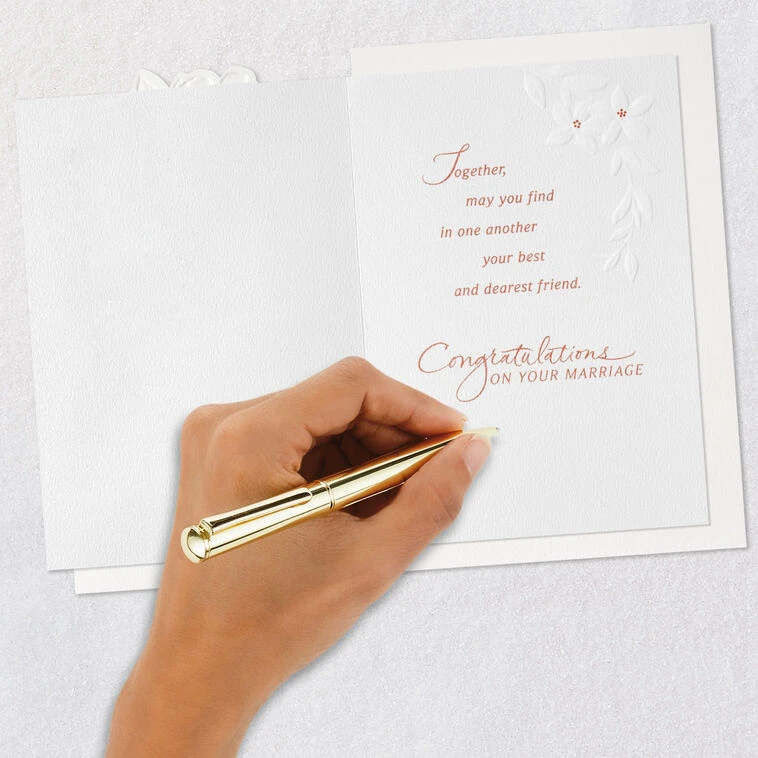 Together,
may you find
in one another
your best
and dearest friend.
Congratulations
ON YOUR MARRIAGE